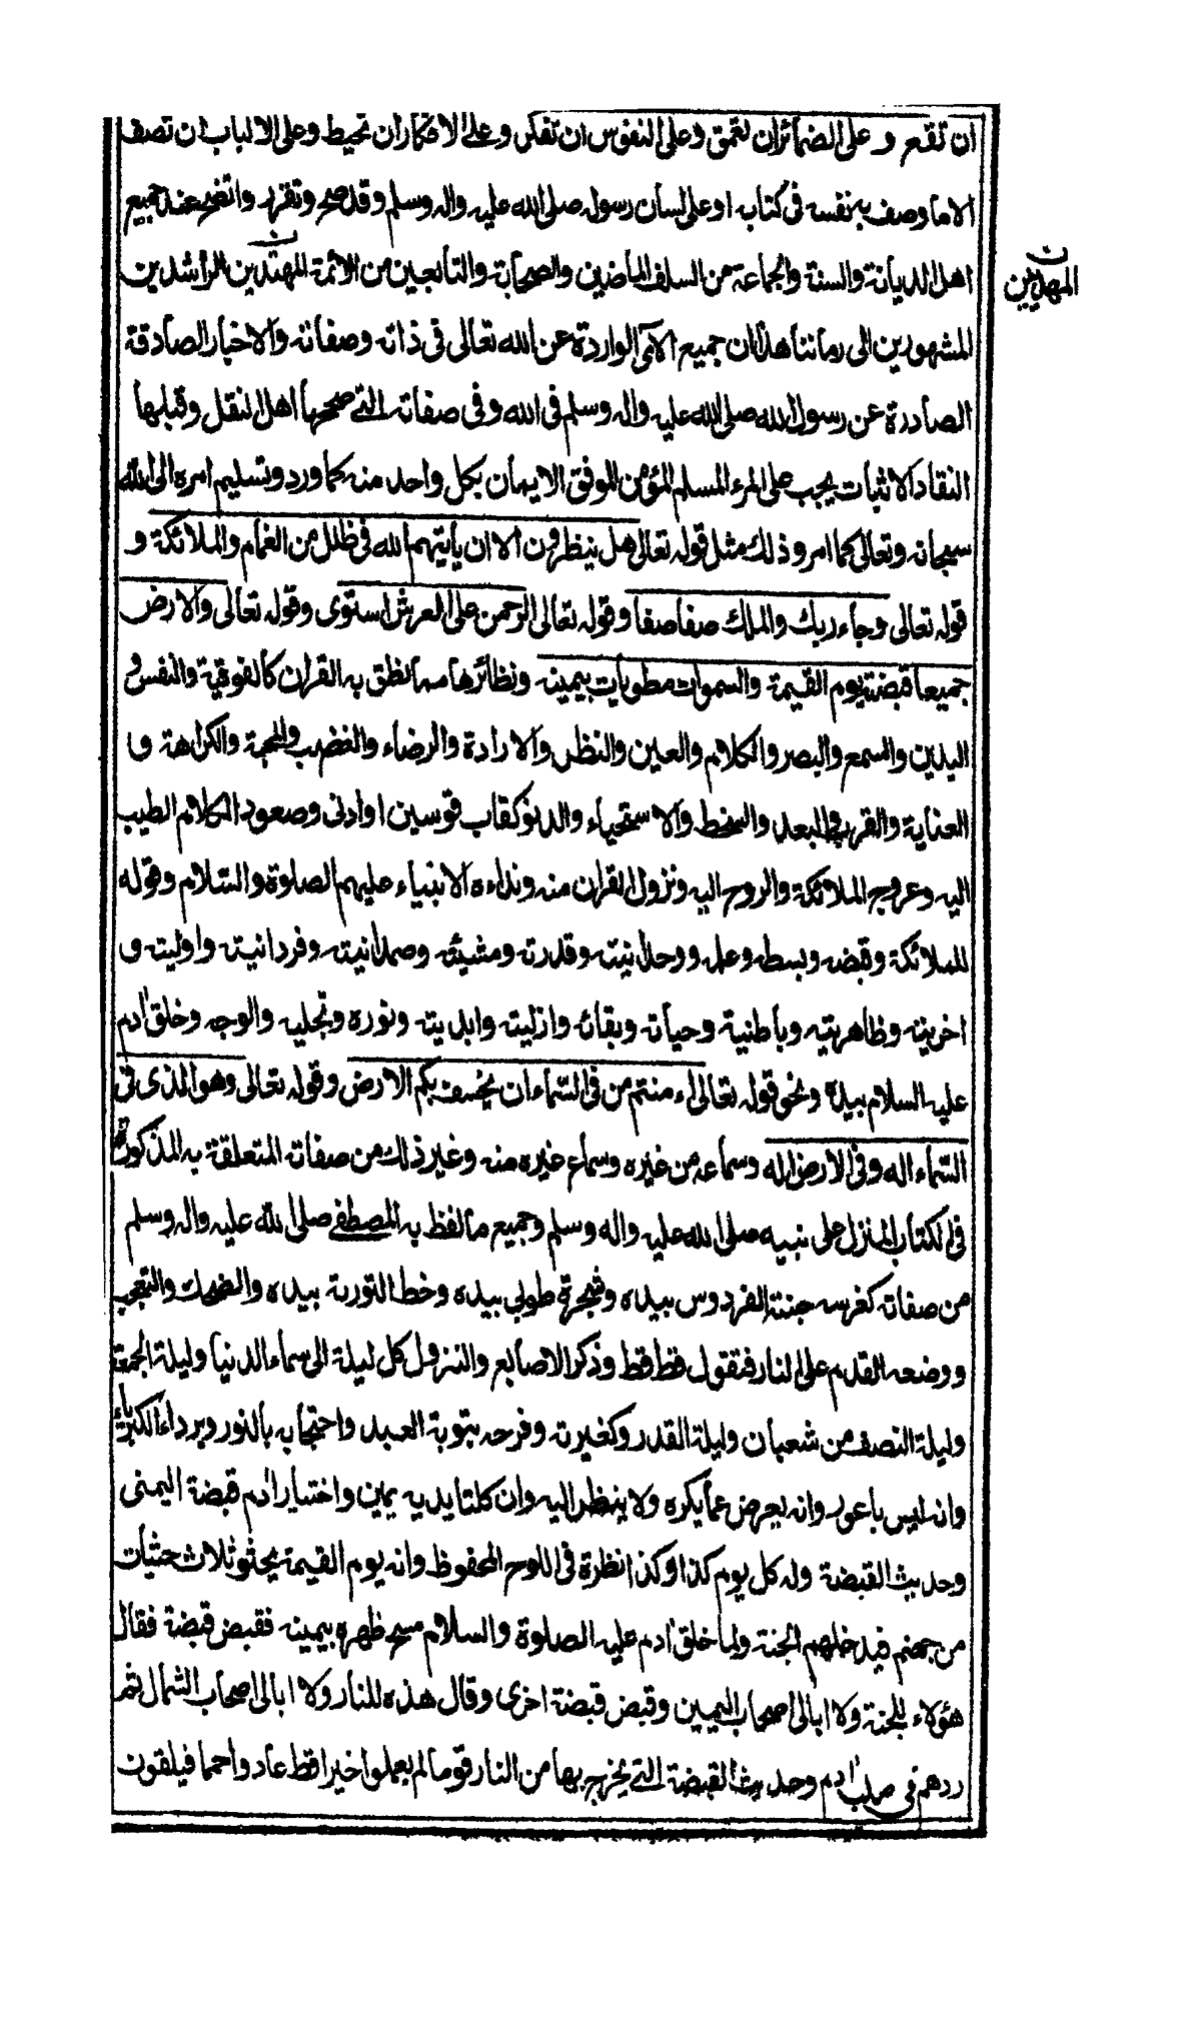 ان تقعر و على الضمائر ان تعمق وعلى النفوس ان تفكر وعلى الافكار ان تحيط وعلى الالباب ان تصف
الا ما وصف به نفسه فى كتابه او على لسان رسوله صلى الله عليه واله وسلم وقد صح وتقرر واتضح عند جميع
اهل الديانة والسنة والجماعة من السلف الماضين والصحابة والتابعين من الائمة المهتدين الراشدين
المهديين ن
المشهورين الى زماننا هذا ان جميع الآى الواردة عن الله تعالى فى ذاته وصفاته والاخبار الصادقة
الصادرة عن رسول الله صلى الله عليه واله وسلم فى الله وفى صفاته التى صححها اهل النقل وقبلها
النقاد الاثبات يجب على المرء المسلم المؤمن الموفق الايمان بكل واحد منه كما ورد وتسليم امره الى الله
سبحانه وتعالى كما امر وذلك مثل قوله تعالى هل ينظرون الا ان يأتيهم الله فى ظلل من الغمام والملائكة و
قوله تعالى وجاء ربك والملك صفا صفا وقوله تعالى الرحمن على العرش استوى وقوله تعالى والارض
جميعا قبضته يوم القيمة والسموات مطويات بيمينه ونظائرها مما نطق به القران كالفوقية والنفس و
اليدين والسمع والبصر والكلام والعين والنظر والارادة والرضاء والغضب والمحبة والكراهة و
العناية والقرب والبعد والسخط والاستحياء والدنو كقاب قوسين او ادنى وصعود الكلام الطيب
اليه وعروج الملائكة والروح اليه ونزول القران منه ونداءه الانبياء عليهم الصلوة والسلام وقوله
للملائكة وقبضه وبسطه وعلمه ووحدانيته وقدرته ومشيئته وصمدانيته وفردانيته واوليته و
اخريته وظاهريته وباطنية وحياته وبقائه وازليته وابديته ونوره وتجليه والوجه وخلق ادم
عليه السلام بيده ونحو قوله تعالى اء منتم من فى السماء ان يخسف بكم الارض وقوله تعالى وهو الذى فى
السماء اله وفى الارض اله وسماعه من غيره وسماع غيره منه وغير ذلك من صفاته المتعلقة به المذكورة
فى الكتاب المنزل على نبيه صلى الله عليه واله وسلم وجميع ما لفظ به المصطفى صلى الله عليه واله وسلم
من صفاته كغرسه جنة الفردوس بيده وشجرة طوبى بيده وخط التورية بيده والضحك والتعجب
ووضعه القدم على النار فتقول قط قط وذكر الاصابع والنزول كل ليلة الى سماء الدنيا وليلة الجمعة
وليلة النصف من شعبان وليلة القدر وكغيرته وفرحه بتوبة العبد واحتجابه بالنور وبرداء الكبرياء
وانه ليس باعور وانه يعرض عما يكره ولا ينظر اليه وان كلتا يديه يمين واختيار ادم قبضة اليمنى
وحديث القبضة وله كل يوم كذا وكذا نظرة فى اللوح المحفوظ وانه يوم القيمة يحثو ثلاث حثيات
من جهنم فيدخلهم الجنة ولما خلق ادم عليه الصلوة والسلام مسح ظهره بيمينه فقبض قبضة فقال
هؤلاء للجنة ولا ابالى اصحاب اليمين وقبض قبضة اخرى وقال هذه للنار ولا ابالى اصحاب الشمال ثم
ردهم فى صلب ادم وحديث القبضة التى يخرج بها من النار قوما لم يعملوا خيرا قط عادوا حمما فيلقون